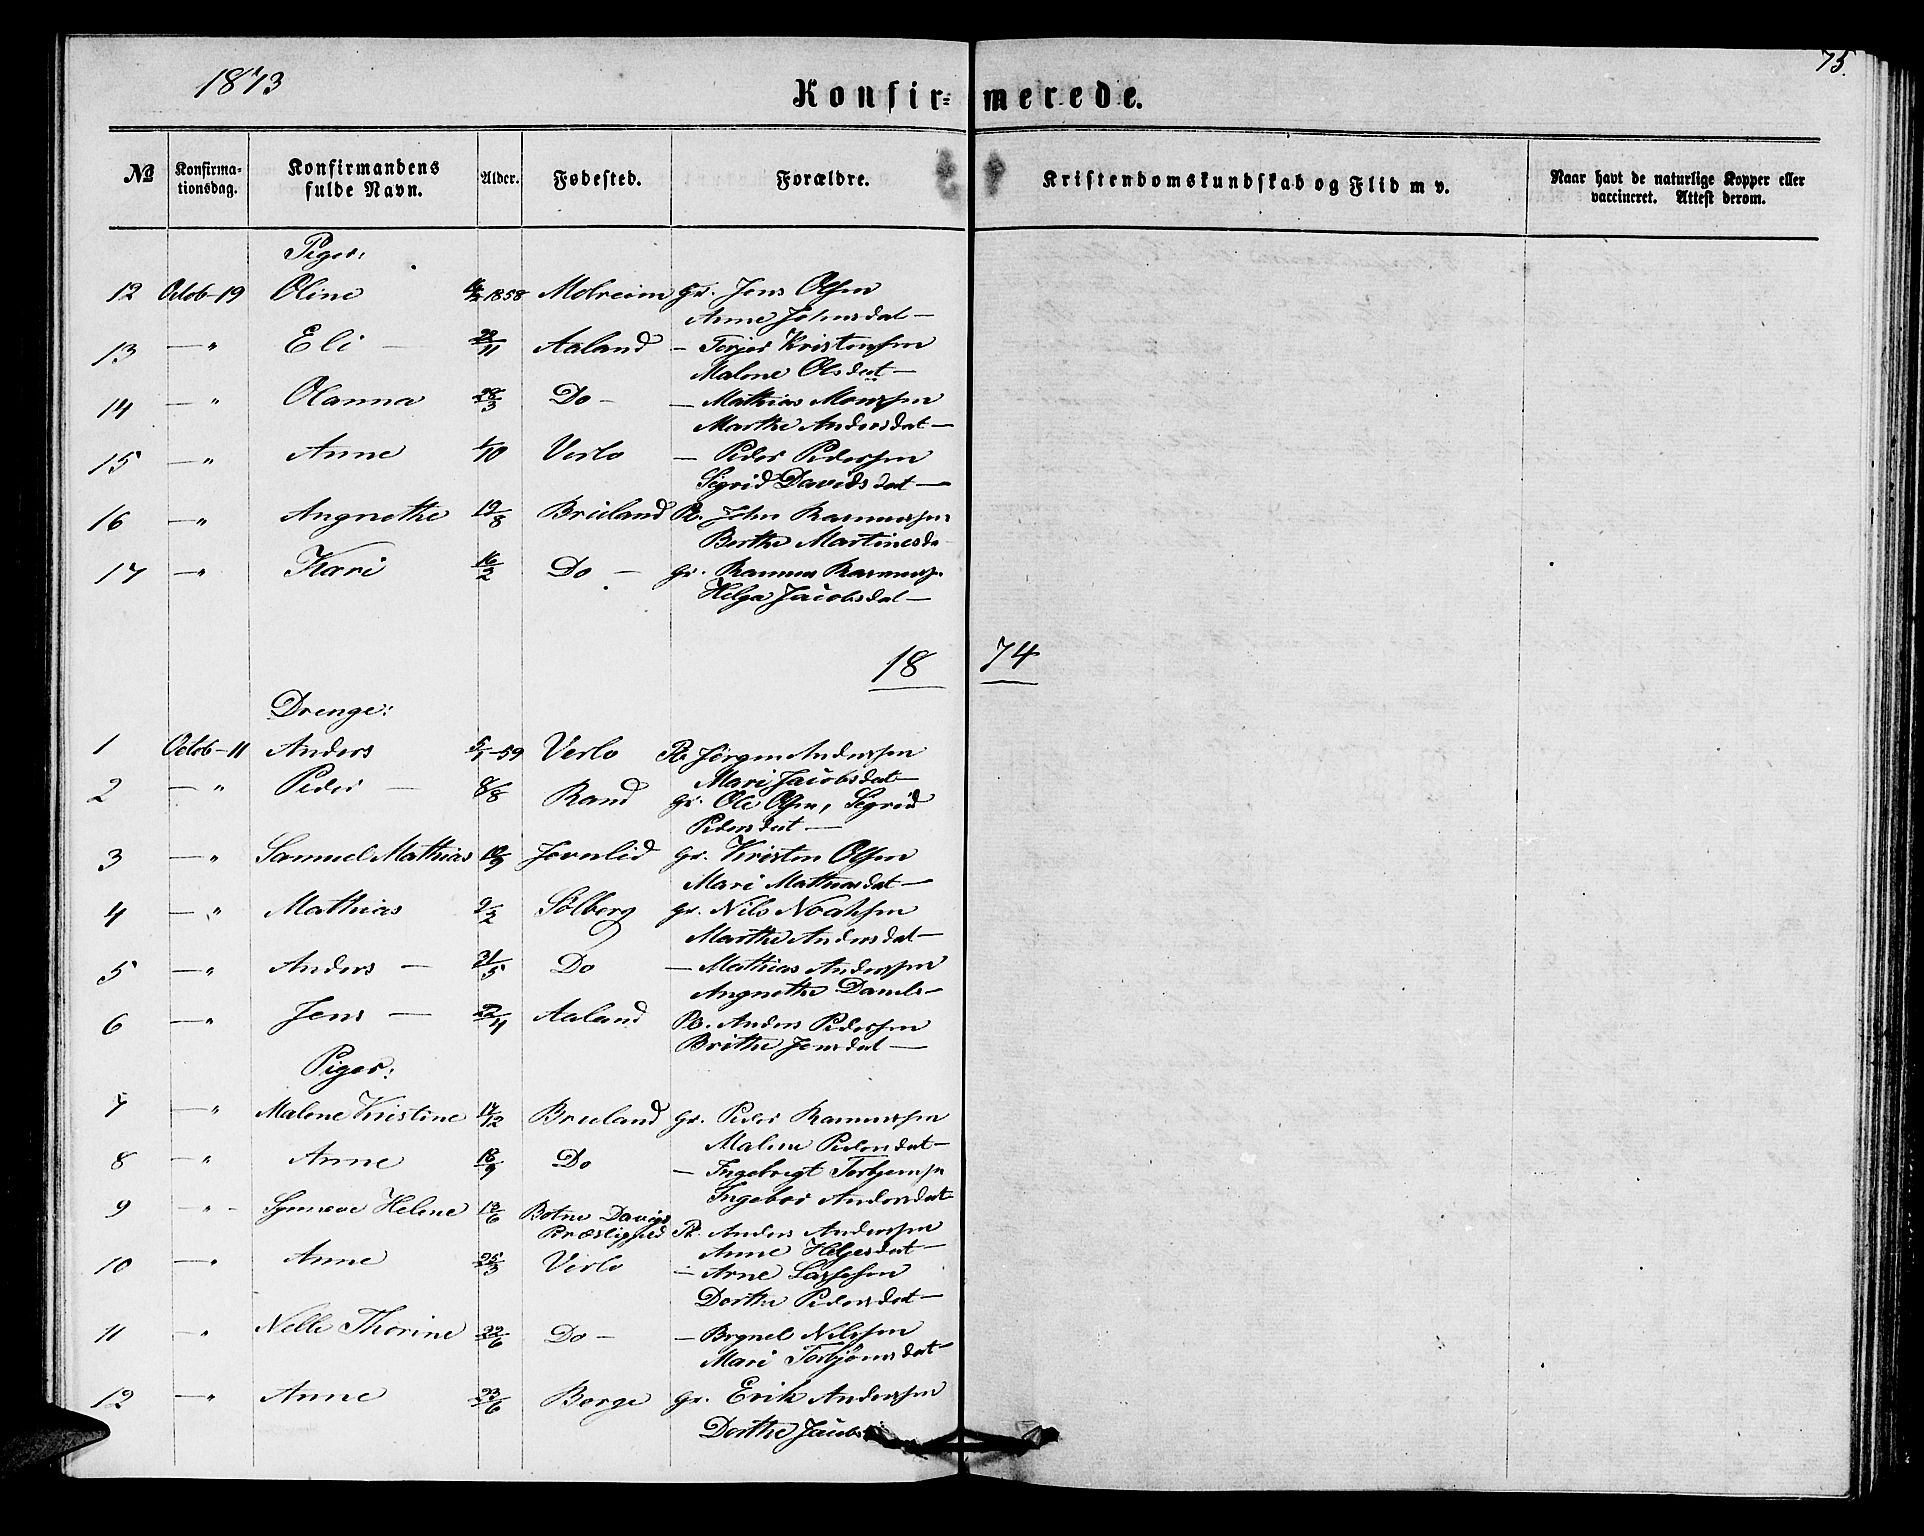 1873
75.
Konfir- merede.
No Konfirma-tionsdag. Konfirmandens fulde Navn. Alder. Fødested. Forældre. Kristendomskundskab og Flid m v. Naar havt de naturlige Kopper eller vaccineret. Attest derom.
Piger:
12 Octob-19 Oline 1858 Molreim Gr. Jens Olsen
Anne Johnsdat-
13 -" Eli - 28/11 Aaland - Torjer Kristensen
Malene Olsdat-
14 -" Olanna 28/3 Do- - Mathias Monssen
Marthe Andersdat-
15 -" Anne 1/10 Verlo - Peder Pedersen
Sigrid Davidsdat-
16 -" Angnethe 19/8 Brieland Pl. John Rasmussen
Berthe Martinesda
17 -" Kari 16/2 Do - Gr. Rasmus Rasmuss.
Helga Jacobsdat-
18 74
Drenge:
1 Octob-11 Anders -59 Verlo Pl. Jørgen Anderssen
Mari Jacobsdat-
2 -" Peder - 8/8 Rand Gr. Ole Olsen, Sigrid
Pedersdat-
3 -" Samuel Mathias Gr. Kristen Olsen
Mari Mathiasdat-
4 -" Mathias 9/2 Solberg Gr. Nils Noahsen
Marthe Andersdat-
5 -" Anders - 21/5 Do - Mathias Anderssen
Angnethe Daniels-
6 -" Jens - 22/4 Aaland Pl. Anders Pedersen
Brithe Jensdat-
Piger:
7 -" Malene Kristine 17/12 Brieland Gr. Peder Rasmussen
Malene Pedersdat-
8 -" Anne 18/9 Do - Ingebrigt
Ingebor Andersdat
9 -"- Synneve Helene 18/6 Botne Davigs
Præstigjeld Pl. Anders Anderssen
Anne Helgesdat-
10 -" Anne 25/3 Verlo - Arne Larssen
Dorthe Pedersdat-
11 -" Nelle Thorine 22/6 Do- - Brynel Nilssen
Mari Torbjørnsdat-
12 -" Anne 23/6 Berge Gr. Erik Anderssen
Dorthe Jacobs